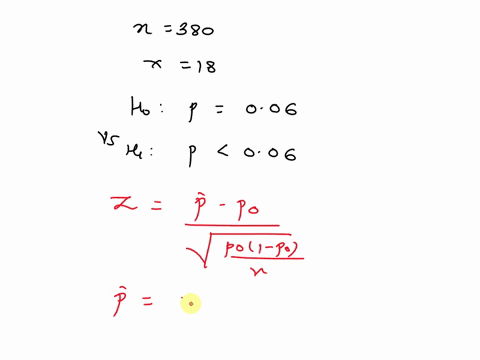 n = 380
x = 18
H₀ : p = 0.06
vs H₁ : p < 0.06
Z = p̂ - p₀ / √(p₀(1-p₀)/n)
p̂ =